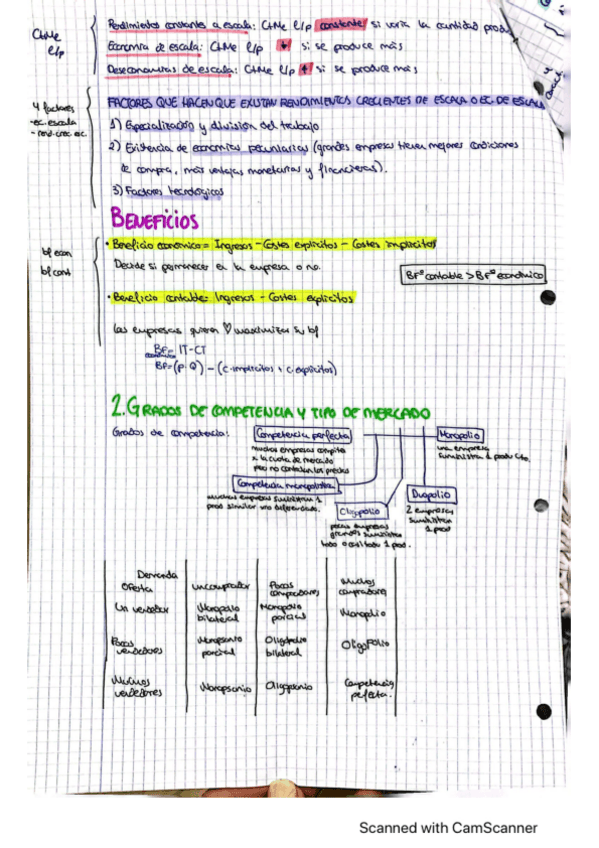 CtMe
l/p
Rendimientos constantes a escala: CtMe l/p constante si varía la cantidad produ
Economía de escala: CtMe l/p ↓ si se produce más
Deseconomías de escala: CtMe l/p ↑ si se produce más
4 factores
-ec. escala
- rend. crec. ec.
FACTORES QUE HACEN QUE EXISTAN RENDIMIENTOS CRECIENTES DE ESCALA O EC. DE ESCALA
1) Especialización y división del trabajo
2) Existencia de economías pecuniarias (grandes empresas tienen mejores condiciones
de compra, más ventajas monetarias y financieras).
3) Factores tecnológicos
BENEFICIOS
bf econ
bf cont
• Beneficio económico = Ingresos - Costes explícitos - Costes implícitos
Decide si permanecer en la empresa o no.
BFº contable > BFº económico
• Beneficio contable: Ingresos - Costes explícitos
Las empresas quieren ♡ maximizar su bf
BF= IT-CT
económico
BF= (P.Q) - (C. implícitos + C. explícitos)
2. GRADOS DE COMPETENCIA Y TIPO DE MERCADO
Grados de competencia:
Competencia perfecta
muchas empresas compite
x la cuota de mercado
pero no controlan los precios
Monopolio
una empresa
suministra 1 producto.
Competencia monopolística
muchas empresas suministran 1
prod similar no diferenciado.
Oligopolio
pocas empresas
grandes suministra
todo o casi todo 1 prod.
Duopolio
2 empresas
suministran
1 prod
Demanda
Oferta
un comprador
Pocos
compradores
Muchos
compradores
Un vendedor
Monopolio
bilateral
Monopolio
parcial
Monopolio
Pocos
vendedores
Monopsonio
parcial
Oligopolio
bilateral
Oligopolio
Muchos
vendedores
Monopsonio
Oligopsonio
Competencia
perfecta.
Scanned with CamScanner